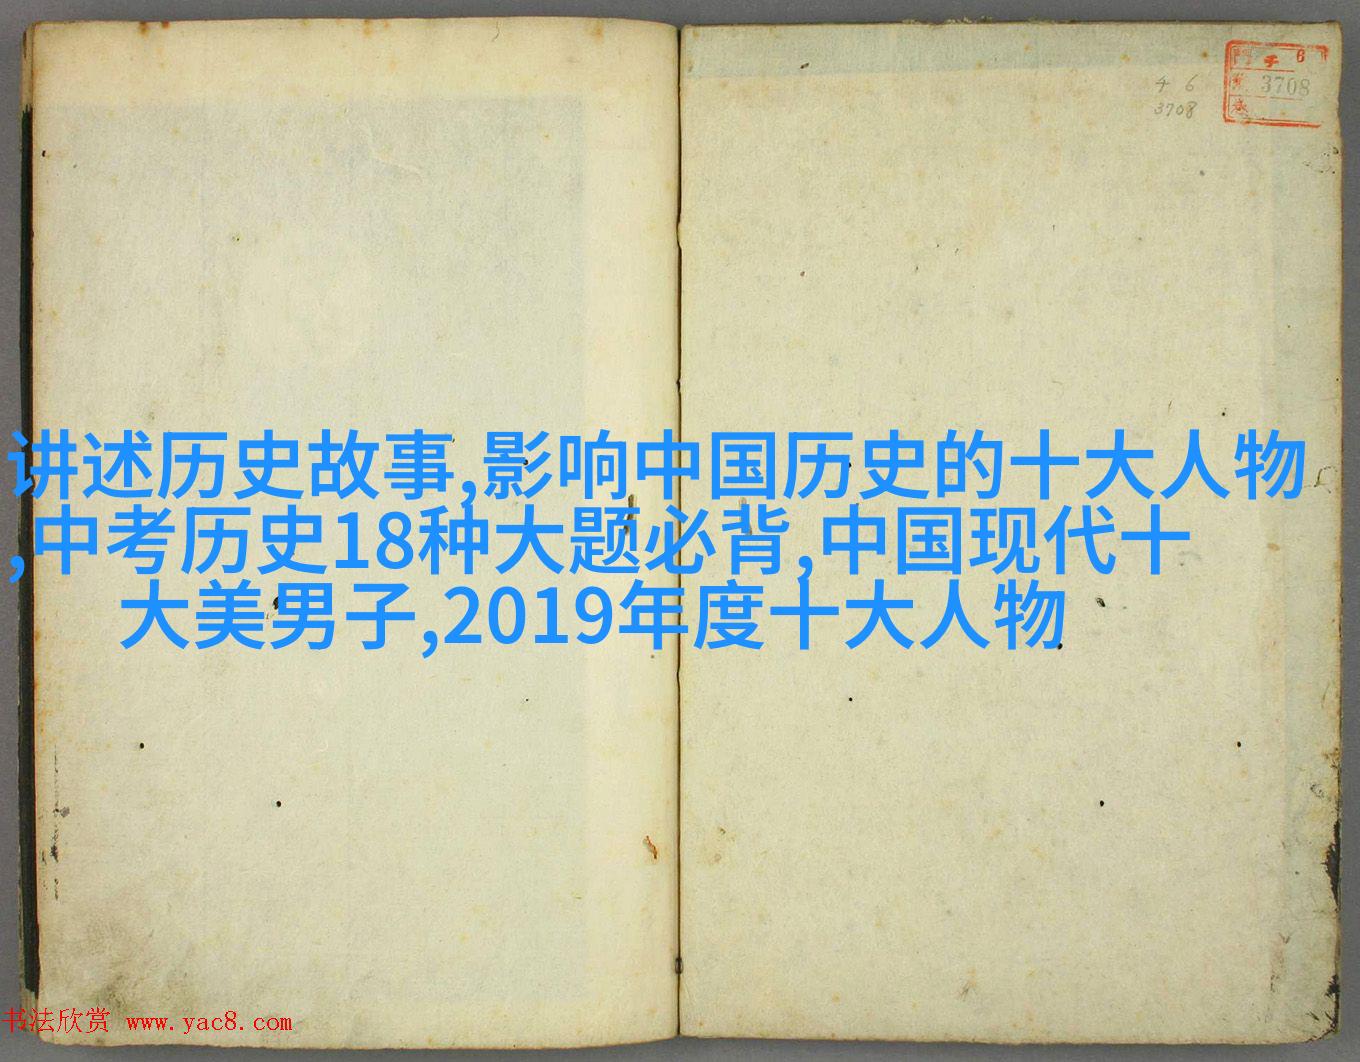 讲述历史故事,影响中国历史的十大人物
,中考历史18种大题必背,中国现代十
大美男子,2019年度十大人物
4 6
3708
6
3708
书法欣赏 www.yac8.com